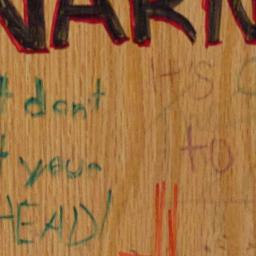 WARN
t dont
t your
HEAD!
it's
to